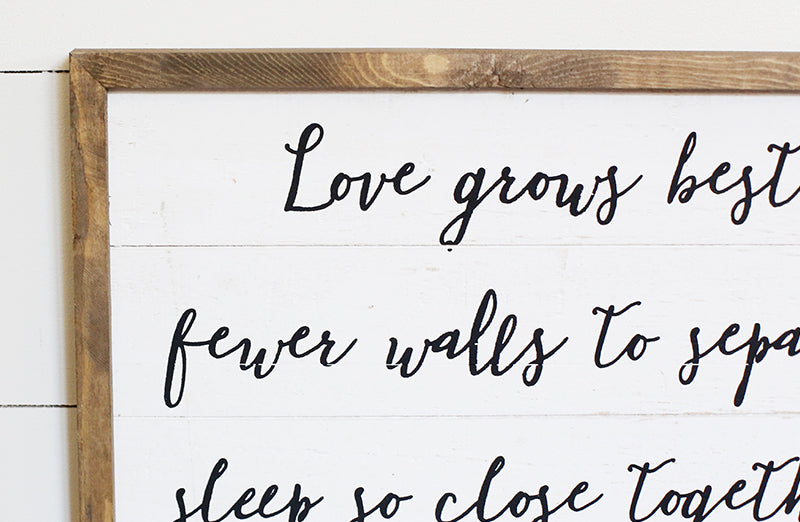 Love grows best
fewer walls to sepa
sleep so close togeth